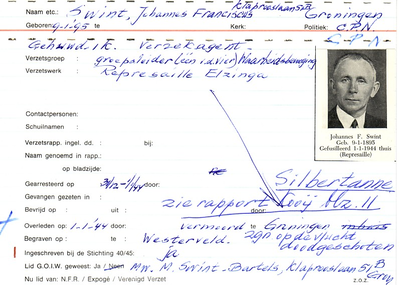 Naam etc.: Swint, Johannes Franciscus Klaproselaan 51B Groningen
Geboren 9-1-95 te Kerk: Politiek: C.P.N
Gehuwd. ik. Verzekagent. C.P.N
Verzetsgroep: groepsleider (één i.d. vier)
Verzetswerk Represaille Elzinga
Contactpersonen:
Schuilnaam:
Verzetsrapp. ingel. dd. : bij:
Naam genoemd in rapp.:
op bladzijde:
Johannes F. Swint
Geb. 9-1-1895
Gefusilleerd 1-1-1944 thuis
(Represaille)
Gearresteerd op 31/12-1/1/44 door: Silbertanne
Gevangen gezeten in : zie rapport blz. 11
Bevrijd op : uit: door:
Overleden op : 1-1-'44 door: vermoord te Groningen
Begraven op : te Westerveld. zgn op de vlucht doodgeschoten
Ingeschreven bij de Stichting 40/45: ja
Lid G.O.I.W. geweest: Ja / Neen Mw. M. Swint-Bartels, Klaproselaan 51B Gron
Nu lid van: N.F.R. / Expogé / Verenigd Verzet z.o.z.